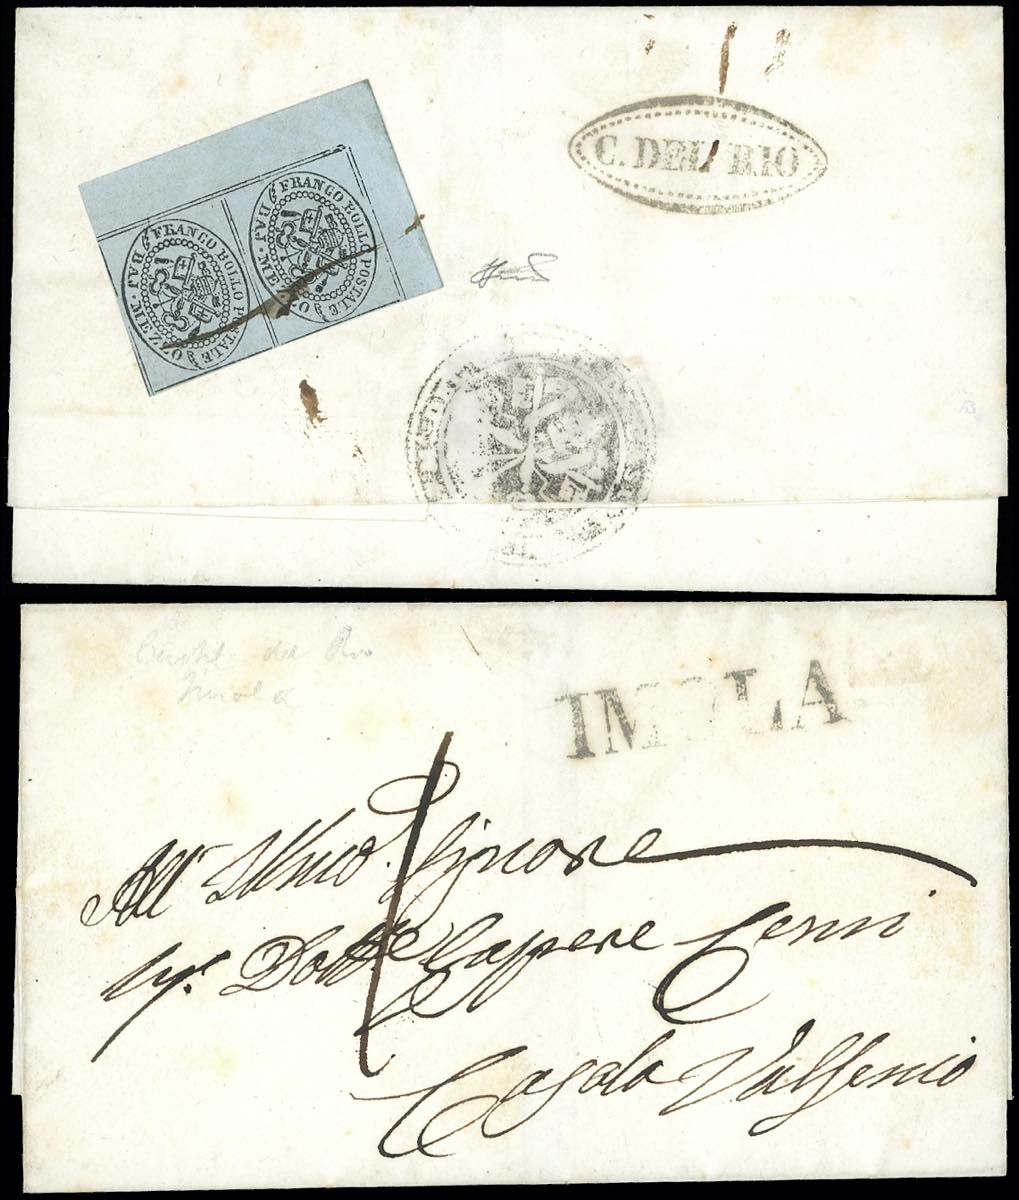 FRANCO BOLLO POSTALE
BAJ. MEZZO
FRANCO BOLLO POSTALE
BAJ. MEZZO
C. DEL RIO
Castel del Rio
Imola
IMOLA
1
All' Illmo Signore
Dott.e Gaspere Cenni
Casola Valsenio